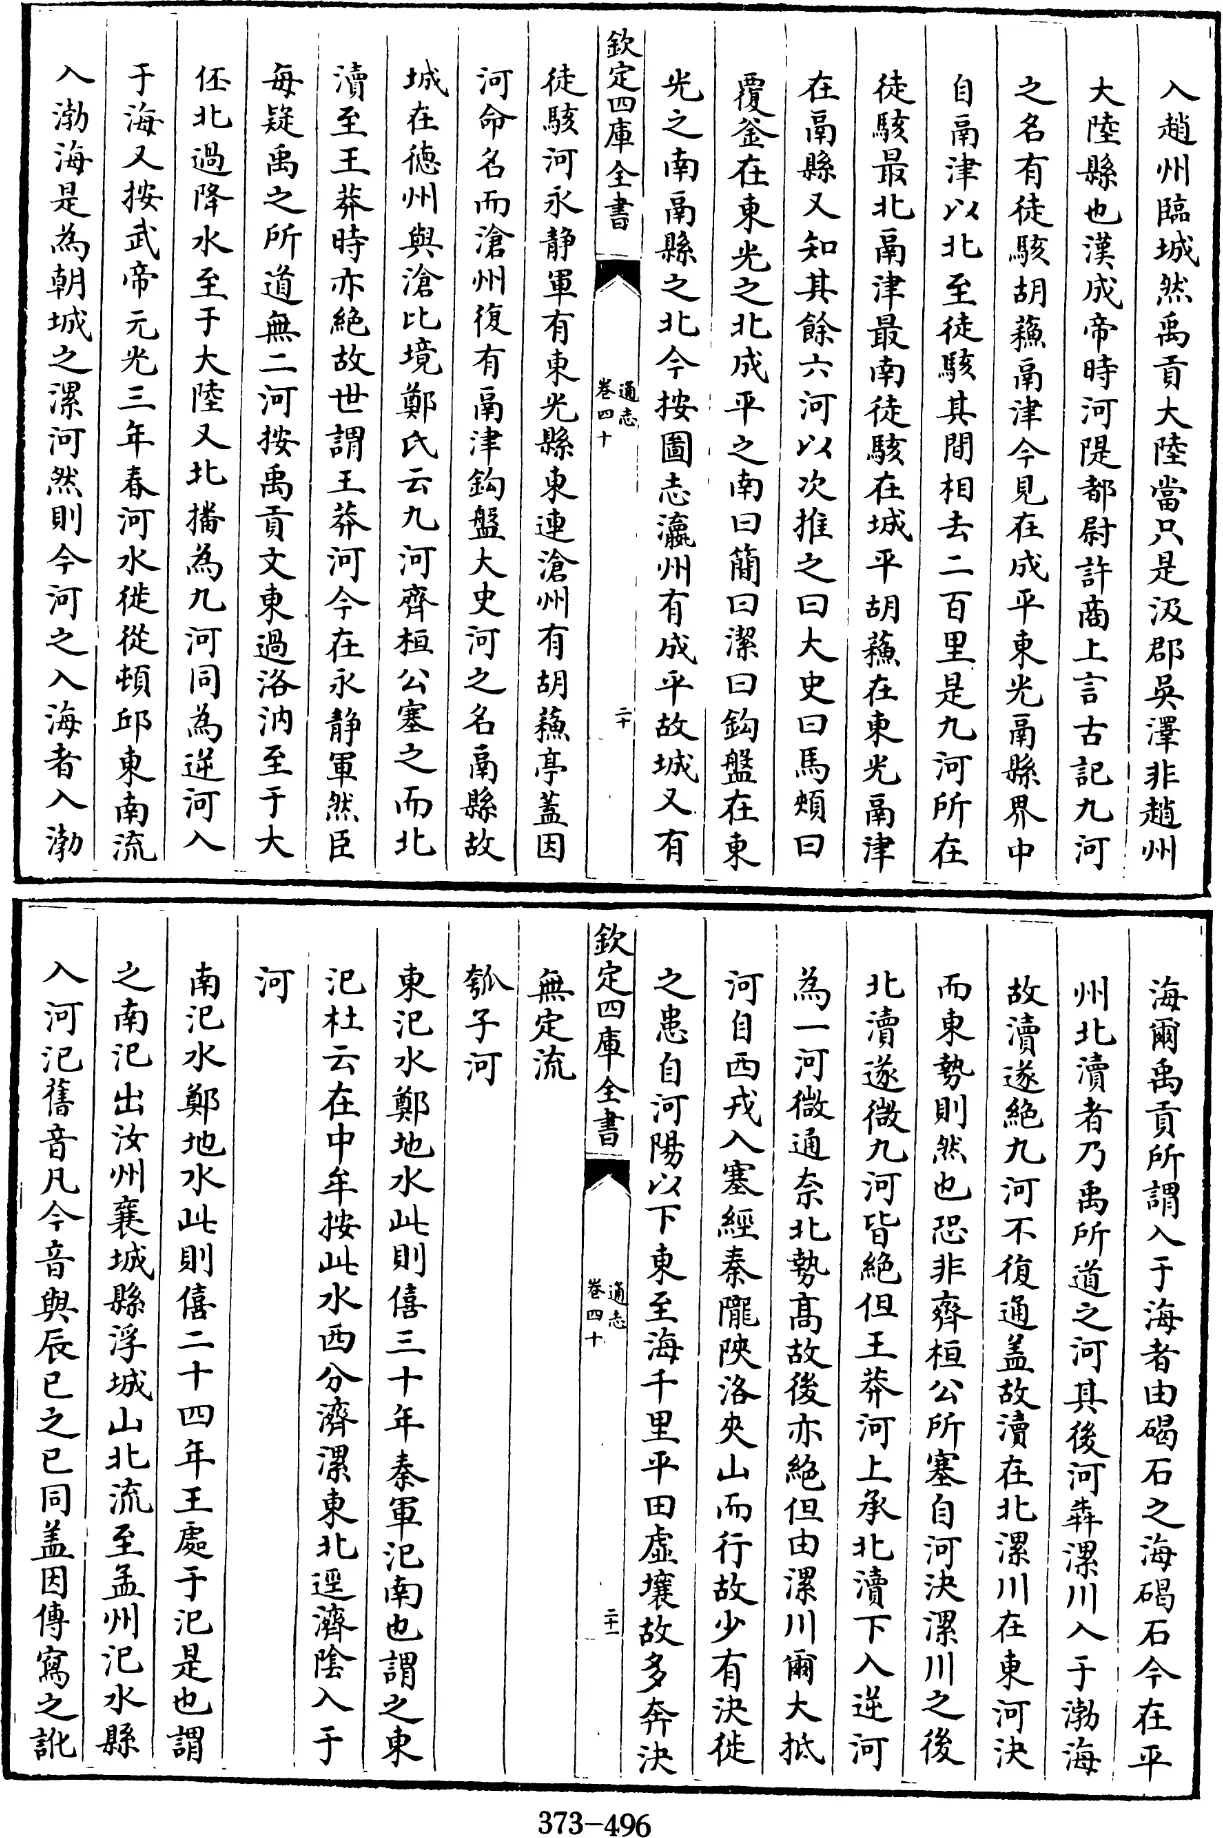 入趙州臨城然禹貢大陸當只是汲郡吳澤非趙州
大陸縣也漢成帝時河隄都尉許商上言古記九河
之名有徒駭胡蘓鬲津今見在成平東光鬲縣界中
自鬲津以北至徒駭其間相去二百里是九河所在
徒駭最北鬲津最南徒駭在城平胡蘓在東光鬲津
在鬲縣又知其餘六河以次推之曰大史曰馬頰曰
覆釜在東光之北成平之南曰簡曰潔曰鈎盤在東
光之南鬲縣之北今按圖志瀛州有成平故城又有
欽定四庫全書
通志
卷四十
二十
徒駭河永靜軍有東光縣東連滄州有胡蘓亭蓋因
河命名而滄州復有鬲津鈎盤大史河之名鬲縣故
城在徳州與滄比境鄭氏云九河齊桓公塞之而北
瀆至王莽時亦絶故世謂王莽河今在永靜軍然臣
每疑禹之所道無二河按禹貢文東過洛汭至于大
伾北過降水至于大陸又北播為九河同為逆河入
于海又按武帝元光三年春河水徙從頓邱東南流
入渤海是為朝城之漯河然則今河之入海者入渤
海爾禹貢所謂入于海者由碣石之海碣石今在平
州北瀆者乃禹所道之河其後河犇漯川入于渤海
故瀆遂絶九河不復通盖故瀆在北漯川在東河決
而東勢則然也恐非齊桓公所塞自河決漯川之後
北瀆遂微九河皆絶但王莽河上承北瀆下入逆河
為一河微通奈北勢髙故後亦絶但由漯川爾大抵
河自西戎入塞經秦隴陜洛夾山而行故少有決徙
之患自河陽以下東至海千里平田虛壤故多奔決
欽定四庫全書
通志
卷四十
二十一
無定流
瓠子河
東汜水鄭地水此則僖三十年秦軍汜南也謂之東
汜杜云在中牟按此水西分濟漯東北逕濟陰入于
河
南汜水鄭地水此則僖二十四年王處于汜是也謂
之南汜出汝州襄城縣浮城山北流至孟州汜水縣
入河汜舊音凡今音與辰巳之巳同盖因傳寫之訛
373-496